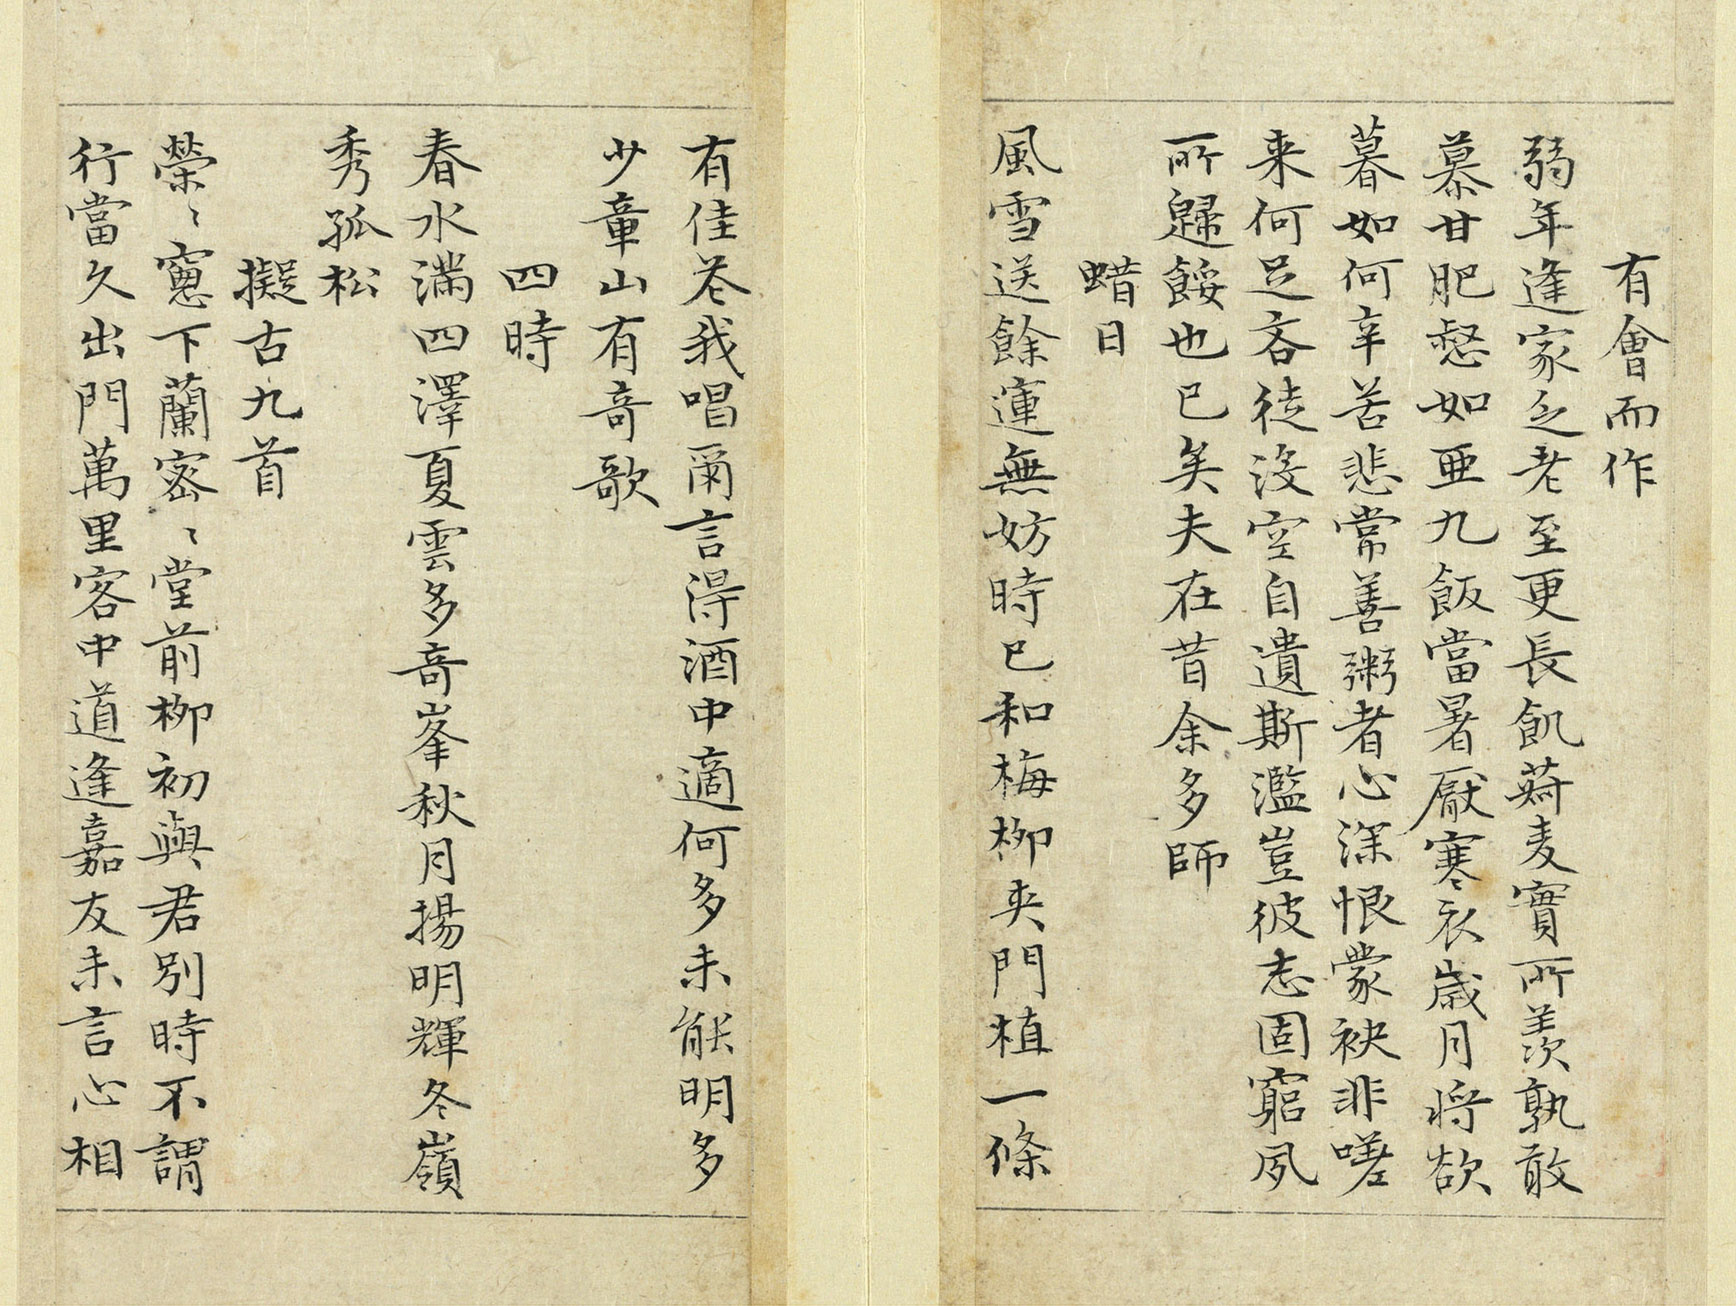 有會而作
弱年逢家乏老至更長飢菽麦實所羨孰敢
慕甘肥惄如亜九飯當暑厭寒衣歳月将欲
暮如何辛苦悲常善粥者心深恨蒙袂非嗟
来何足吝徒沒空自遺斯濫豈彼志固窮夙
所歸餒也已矣夫在昔余多師
蜡日
風雪送餘運無妨時已和梅柳夾門植一條
有佳花我唱爾言得酒中適何多未能明多
少章山有奇歌
四時
春水滿四澤夏雲多奇峯秋月揚明輝冬嶺
秀孤松
擬古九首
榮〻窻下蘭密〻堂前柳初與君別時不謂
行當久出門萬里客中道逢嘉友未言心相